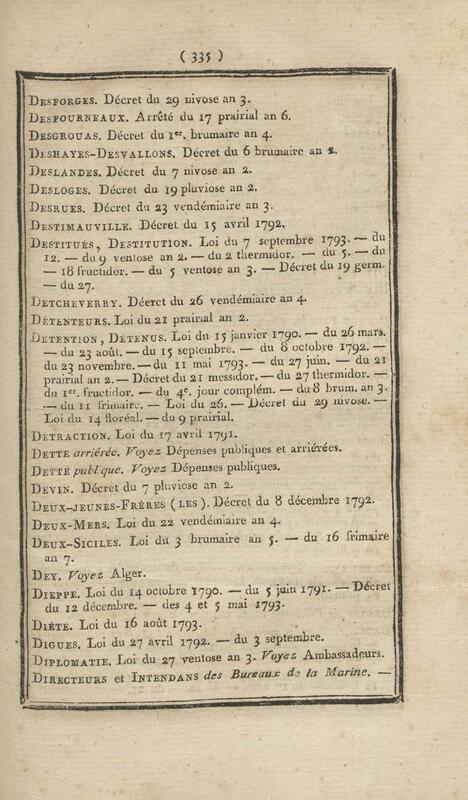 ( 335 )
DESFORGES. Décret du 29 nivose an 3.
DESFOURNEAUX. Arrêté du 17 prairial an 6.
DESGROUAS. Décret du 1er. brumaire an 4.
DESHAYES-DESVALLONS. Décret du 6 brumaire an 2.
DESLANDES. Décret du 7 nivose an 2.
DESLOGES. Décret du 19 pluviose an 2.
DESRUES. Décret du 23 vendémiaire an 3.
DESTIMAUVILLE. Décret du 15 avril 1792.
DESTITUÉS, DESTITUTION. Loi du 7 septembre 1793. — du
12. — du 9 ventose an 2. — du 2 thermidor. — du 5. — du
— 18 fructidor. — du 5 ventose an 3. — Décret du 19 germ.
— du 27.
DETCHEVERRY. Déerct du 26 vendémiaire an 4.
DÉTENTEURS. Loi du 21 prairial an 2.
DÉTENTION, DÉTENUS. Loi du 15 janvier 1790. — du 26 mars.
— du 23 août. — du 15 septembre. — du 8 octobre 1792. —
du 23 novembre. — du 11 mai 1793. — du 27 juin. — du 21
prairial an 2. — Décret du 21 messidor. — du 27 thermidor. —
du 1er. fructidor. — du 4e. jour complém. — du 8 brum. an 3.
— du 11 frimaire. — Loi du 26. — Décret du 29 nivose. —
Loi du 14 floréal. — du 9 prairial.
DÉTRACTION. Loi du 17 avril 1791.
DETTE arriérée. Voyez Dépenses publiques et arriérées.
DETTE publique. Voyez Dépenses publiques.
DEVIN. Décret du 7 pluviose an 2.
DEUX-JEUNES-FRÈRES (LES). Décret du 8 décembre 1792.
DEUX-MERS. Loi du 22 vendémiaire an 4.
DEUX-SICILES. Loi du 3 brumaire an 5. — du 16 frimaire
an 7.
DEY. Voyez Alger.
DIEPPE. Loi du 14 octobre 1790. — du 5 juin 1791. — Décret
du 12 décembre. — des 4 et 5 mai 1793.
DIÈTE. Loi du 16 août 1793.
DIGUES. Loi du 27 avril 1792. — du 3 septembre.
DIPLOMATIE. Loi du 27 ventose an 3. Voyez Ambassadeurs.
DIRECTEURS et INTENDANS des Bureaux de la Marine. —